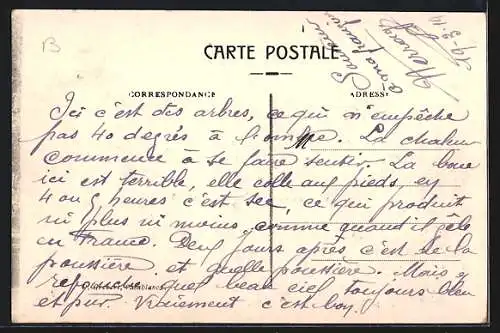 B
CARTE POSTALE
CORRESPONDANCE
ADRESSE
19-3-19
Ici c'est des arbres, ce qui n'empêche
pas 40 degrés à l'ombre. La chaleur
commence à se faire sentir. La boue
ici est terrible, elle colle aux pieds, en
4 ou 5 heures c'est sec, ce qui produit
ni plus ni moins comme quand il gèle
en France. Deux jours après c'est de la
poussière et quelle poussière. Mais
quel beau ciel toujours bleu
et pur. Vraiment c'est bon.